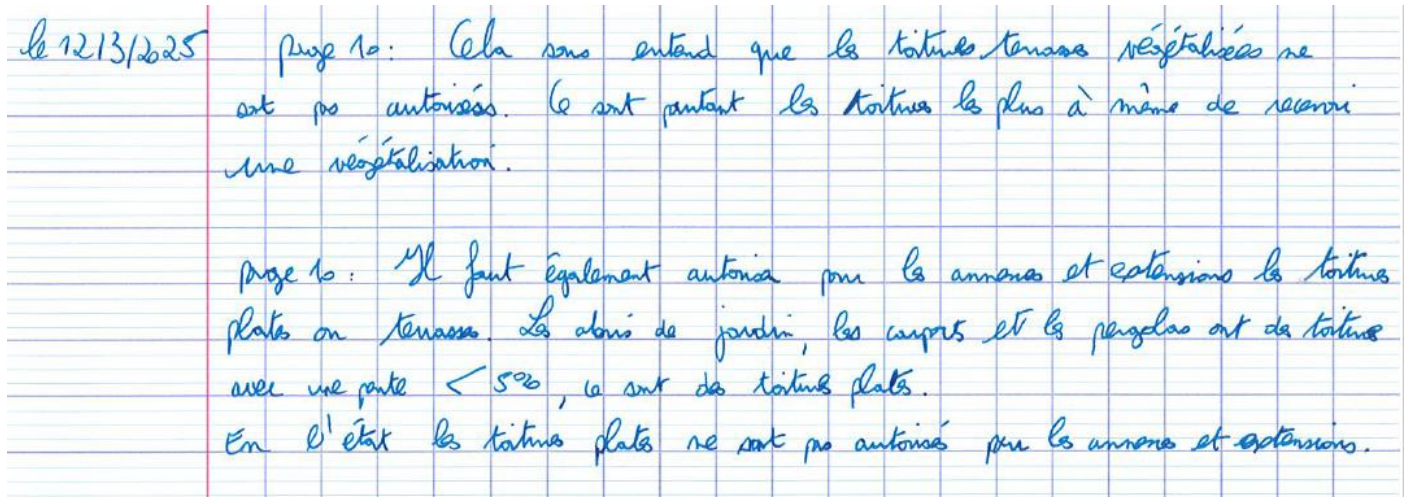 le 12/3/2025 page 10: Cela sous entend que les toitures terrasses végétalisées ne
sont pas autorisées. Ce sont pourtant les toitures les plus à même de recevoir
une végétalisation.
page 10: Il faut également autoriser pour les annexes et extensions les toitures
plates ou terrasses. Les abris de jardin, les carports et les pergolas ont des toitures
avec une pente < 5%, ce sont des toitures plates.
En l'état les toitures plates ne sont pas autorisés pour les annexes et extensions.